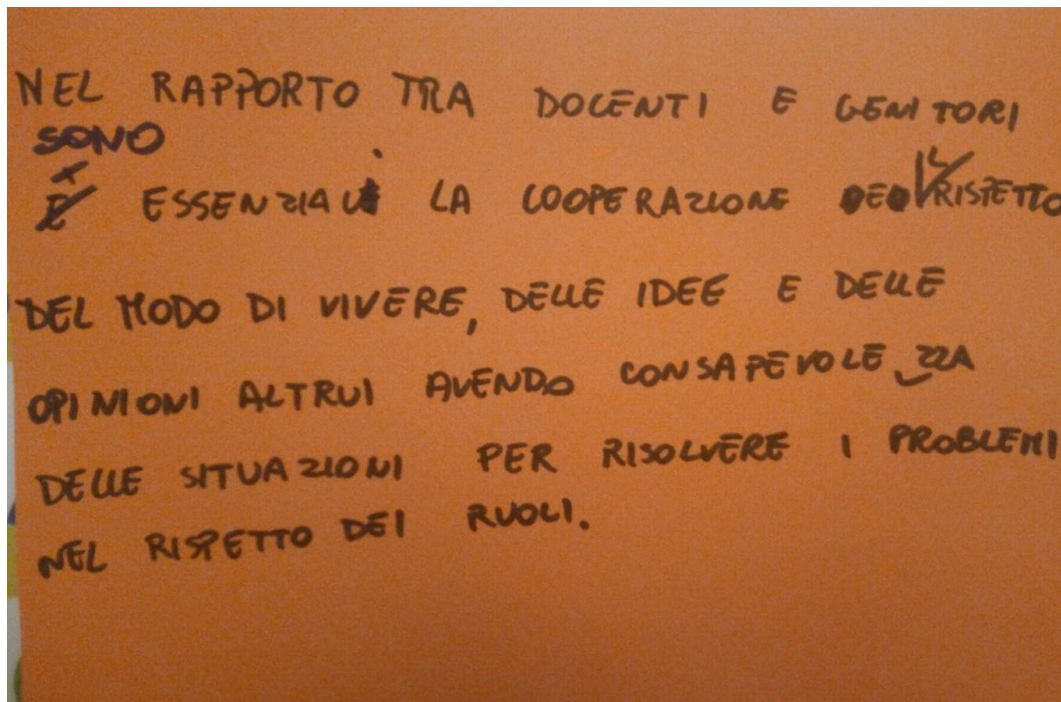 NEL RAPPORTO TRA DOCENTI E GENITORI
SONO
È ESSENZIALI LA COOPERAZIONE E IL RISPETTO
DEL MODO DI VIVERE, DELLE IDEE E DELLE
OPINIONI ALTRUI AVENDO CONSAPEVOLEZZA
DELLE SITUAZIONI PER RISOLVERE I PROBLEMI
NEL RISPETTO DEI RUOLI.